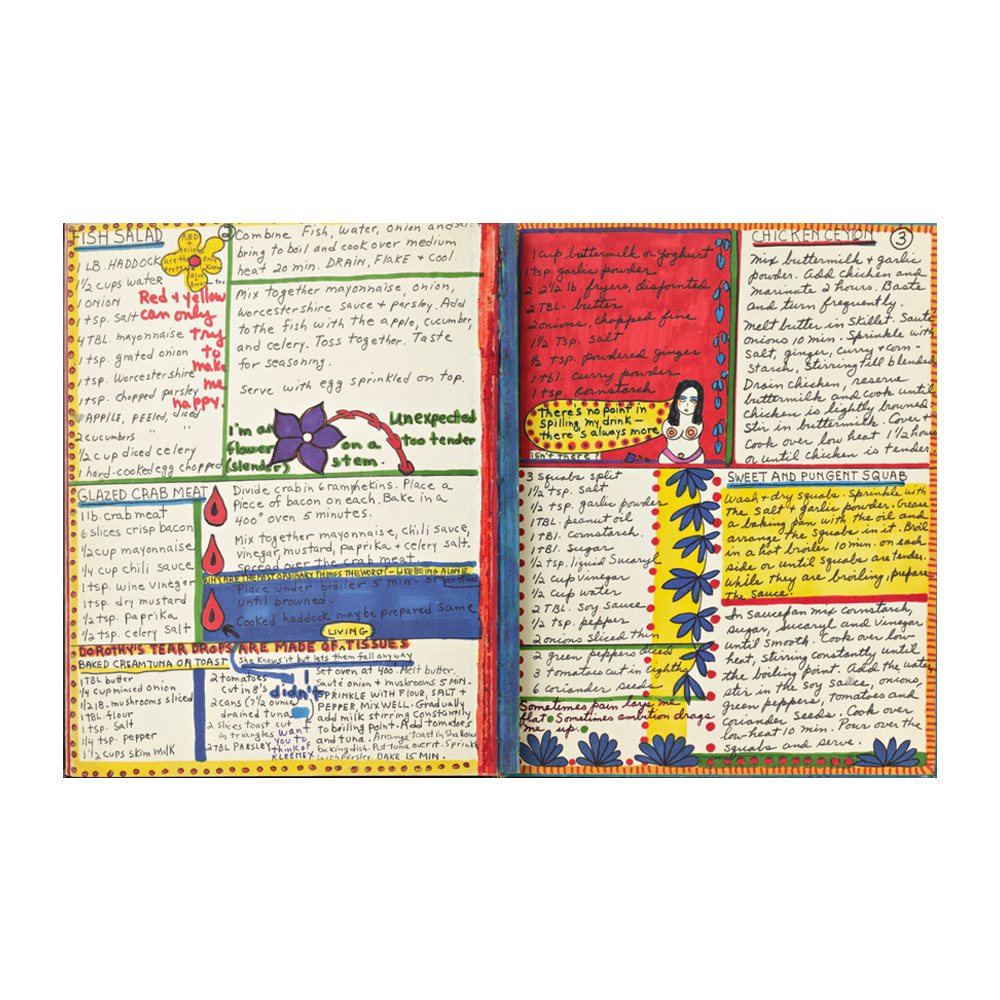 FISH SALAD
②
1 LB. HADDOCK
1½ cups water
1 ONION
1 tsp. Salt
4 TBL. mayonnaise
1 tsp. grated onion
1 tsp. Worcestershire
1 tsp. chopped parsley
1 APPLE, PEELED,
2 cucumbers " "
½ cup diced celery
1 hard-cooked egg chopped
RED +
Red + yellow
can only
try
to
make
me
happy.
Combine Fish, Water, Onion and salt
bring to boil and cook over medium
heat 20 min. DRAIN, FLAKE + COOL.
Mix together mayonnaise, onion,
worcestershire sauce + parsley. Add
to the fish with the apple, cucumber,
and celery. Toss together. Taste
for seasoning.
Serve with egg sprinkled on top.
I'm an Unexpected
flower on a too tender
(slender) stem.
GLAZED CRAB MEAT
1 lb. crab meat
6 slices crisp bacon
½ cup mayonnaise
¼ cup chili sauce
1 tsp. wine vinegar
1 tsp. dry mustard
½ tsp. Paprika
½ tsp. celery Salt
Divide crab in 6 ramekins. Place a
Piece of bacon on each. Bake in a
400° oven 5 minutes.
Mix together mayonnaise, chili sauce,
vinegar, mustard, paprika + celery salt.
Spread over the crab meat
WHY ARE THE MOST ORDINARY THINGS THE WORST? - LIKE BEING ALONE
Place under broiler 5 min. or
until browned.
Cooked haddock may be prepared same
LIVING
DOROTHY'S TEAR DROPS ARE MADE OF TISSUES
She Knows it but lets them fall anyway
BAKED CREAM TUNA ON TOAST
1 TBL butter
¼ cup minced onion
½ lb. mushrooms sliced
1 TBL flour
1 tsp. Salt
¼ tsp. pepper
1½ cups skim milk
2 tomatoes
cut in 8's
2 cans (7½ ounce)
drained tuna
2 slices toast cut
in triangles
2 TBL PARSLEY
didn't
want
you to
think of
KLEENEX
Set oven at 400. Melt butter.
Sauté onion + mushrooms 5 MIN.
SPRINKLE WITH FLOUR, SALT +
PEPPER, MIX WELL. Gradually
add milk stirring constantly
to boiling point. Add tomatoes
and tuna. Arrange toast in shallow
baking dish. Put tuna over it. Sprinkle
with parsley. BAKE 15 MIN.
CHICKEN CEYLON ③
1 cup buttermilk or yoghurt
1 tsp. garlic powder
2 2½ lb. fryers, disjointed
2 TBL. butter
2 onions, chopped fine
1½ Tsp. salt
½ tsp. powdered ginger
1 tbl. curry powder
1 tsp. Kornstarch
There's no point in
spilling my drink —
there's always more
isn't there?
Mix buttermilk + garlic
powder. Add chicken and
marinate 2 hours. Baste
and turn frequently.
Melt butter in skillet. Sauté
onions 10 min. Sprinkle with
Salt, ginger, curry + corn-
Starch, Stirring till blended
Drain chicken, reserve
buttermilk and cook until
chicken is lightly browned
Stir in buttermilk. Cover +
Cook over low heat 1½ hours
or until chicken is tender
SWEET AND PUNGENT SQUAB
3 squabs split
1½ tsp. Salt
½ tsp. garlic powder
1 TBL. peanut oil
1 TBl. Cornstarch.
1 TBl. Sugar
½ tsp. liquid Sucaryl
½ Cup Vinegar
½ Cup water
2 TBL. Soy Sauce
½ tsp. pepper
2 onions sliced thin
2 green peppers diced
3 tomatoes cut in eighths
6 coriander seeds
Sometimes pain lays me
flat. Sometimes ambition drags
me up.
Wash + dry squabs. Sprinkle with
the salt + garlic powder. Grease
a baking pan with the oil and
arrange the squabs in it. Broil
in a hot broiler 10 min. on each
side or until squabs are tender.
While they are broiling, prepare
the sauce.
In Saucepan mix cornstarch,
sugar, sucaryl and vinegar
until smooth. Cook over low
heat, stirring constantly until
the boiling point. Add the water
stir in the soy sauce, onions,
green peppers, tomatoes and
coriander seeds. Cook over
low heat 10 min. Pour over the
squabs and serve.